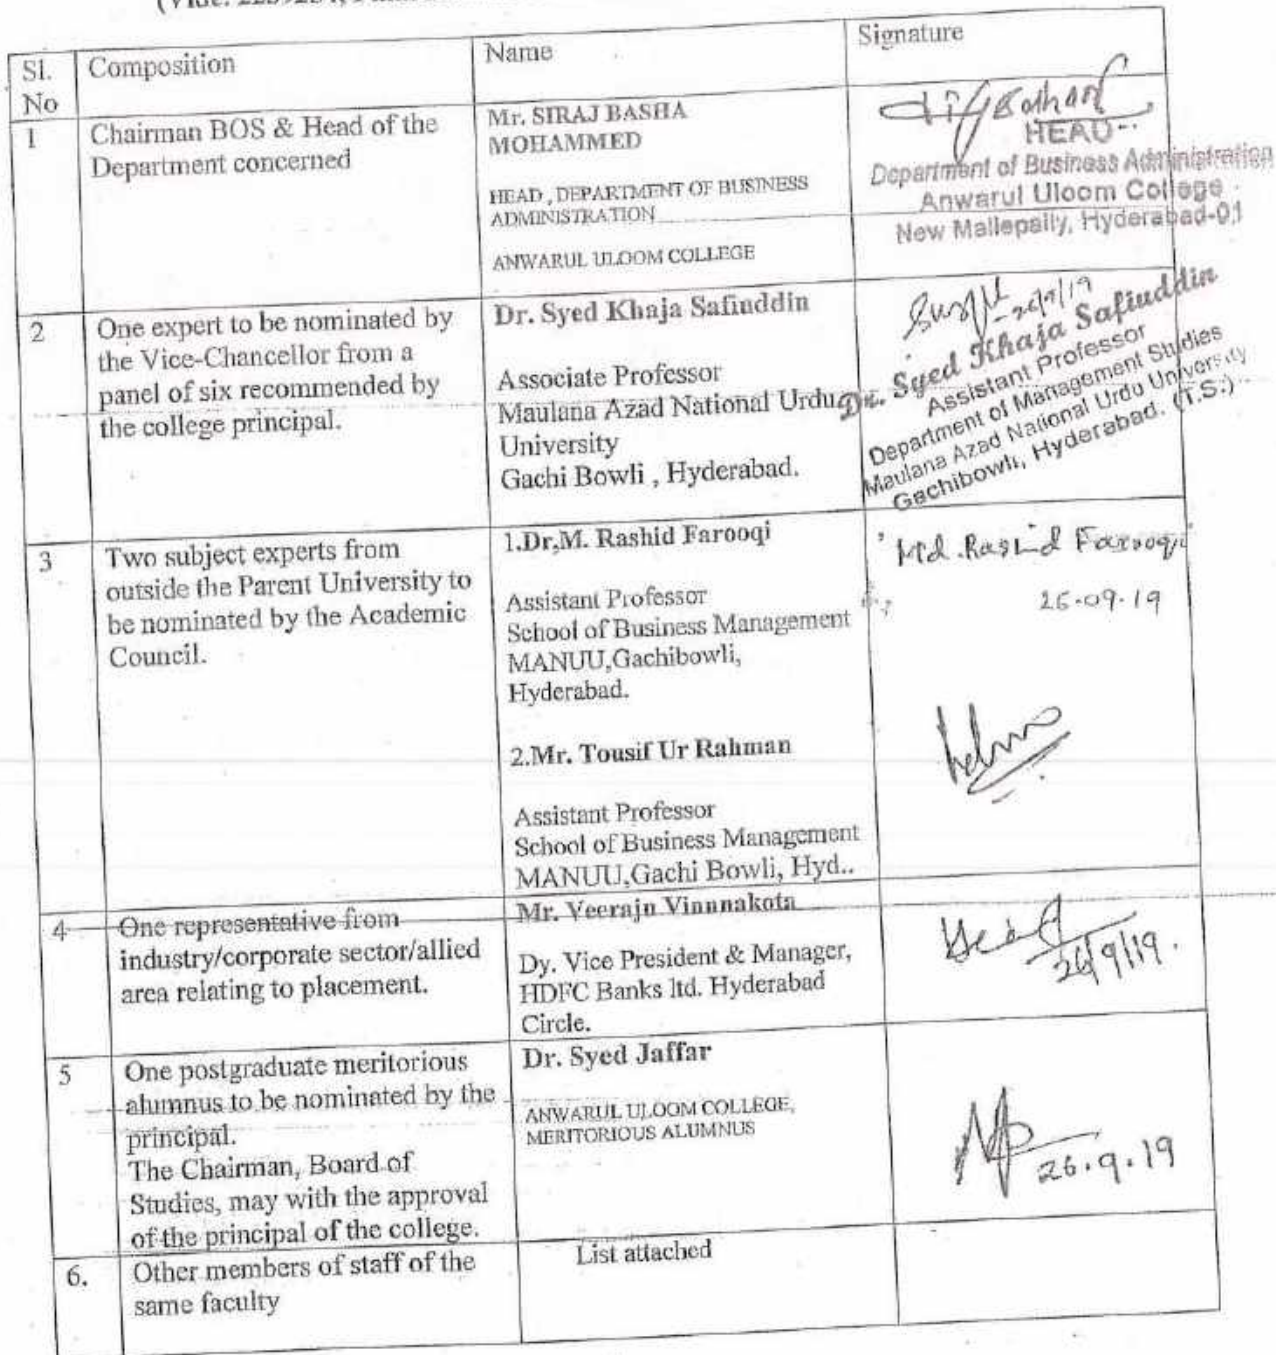 Sl.
No
Composition
Name
Signature
1
Chairman BOS & Head of the
Department concerned
Mr. SIRAJ BASHA
MOHAMMED
HEAD , DEPARTMENT OF BUSINESS
ADMINISTRATION
ANWARUL ULOOM COLLEGE
HEAD
Department of Business Administration
Anwarul Uloom College
New Mallepally, Hyderabad-01
2
One expert to be nominated by
the Vice-Chancellor from a
panel of six recommended by
the college principal.
Dr. Syed Khaja Safiuddin
Associate Professor
Maulana Azad National Urdu
University
Gachi Bowli , Hyderabad.
26/9/19
Dr. Syed Khaja Safiuddin
Assistant Professor
Department of Management Studies
Maulana Azad National Urdu University
Gachibowli, Hyderabad. (T.S.)
3
Two subject experts from
outside the Parent University to
be nominated by the Academic
Council.
1.Dr.M. Rashid Farooqi
Assistant Professor
School of Business Management
MANUU,Gachibowli,
Hyderabad.
2.Mr. Tousif Ur Rahman
Assistant Professor
School of Business Management
MANUU,Gachi Bowli, Hyd..
Md. Rashid Farooqi
26.09.19
4
One representative from
industry/corporate sector/allied
area relating to placement.
Mr. Veeraju Vinnnakota
Dy. Vice President & Manager,
HDFC Banks ltd. Hyderabad
Circle.
26/9/19.
5
One postgraduate meritorious
alumnus to be nominated by the
principal.
The Chairman, Board of
Studies, may with the approval
of the principal of the college.
Dr. Syed Jaffar
ANWARUL ULOOM COLLEGE,
MERITORIOUS ALUMNUS
26.9.19
6.
Other members of staff of the
same faculty
List attached